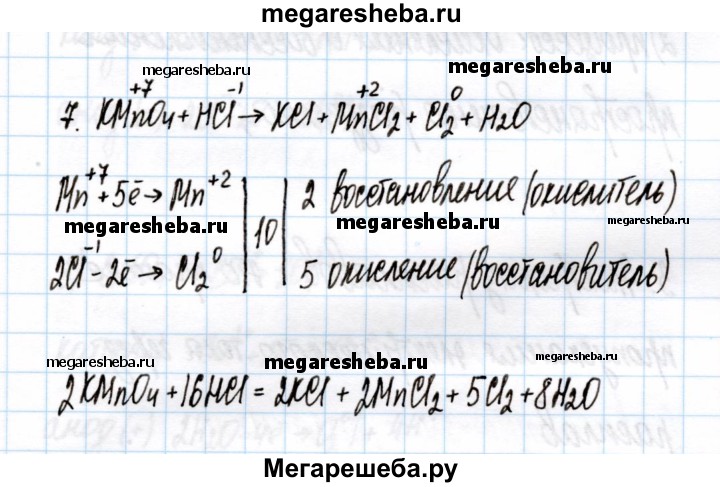 megaresheba.ru
megaresheba.ru megaresheba.ru
+7 -1 +2 0
7. KMnO4 + HCl → KCl + MnCl2 + Cl2 + H2O
Mn+7 + 5ē → Mn+2 | 10 | 2 восстановление (окислитель)
megaresheba.ru megaresheba.ru megaresheba.ru
2Cl-1 - 2ē → Cl2 0 | 5 окисление (восстановитель)
megaresheba.ru megaresheba.ru megaresheba.ru
2KMnO4 + 16HCl = 2KCl + 2MnCl2 + 5Cl2 + 8H2O
Мегарешеба.ру